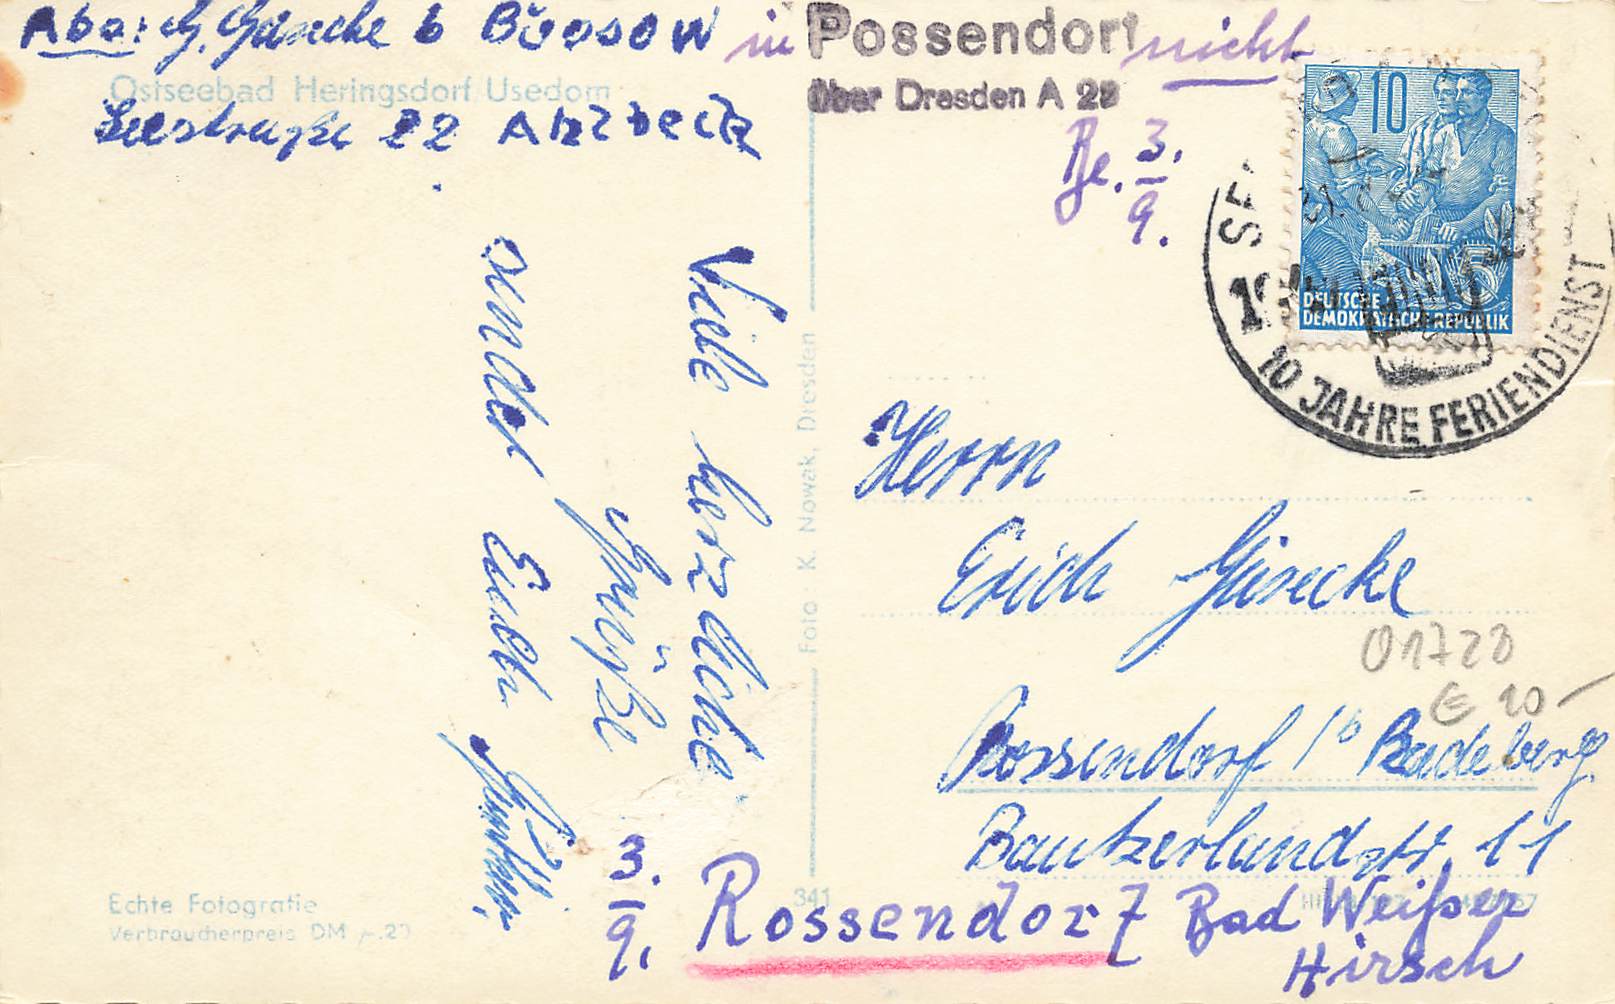 Abs: G. Gäsecke b Büssow
Ostseebad Heringsdorf, Usedom
Seestraße 22 Ahlbeck
in Possendorf nicht
über Dresden A 28
Be. 3.
9.
10
DEUTSCHE
DEMOKRATISCHE REPUBLIK
10 JAHRE FERIENDIENST
Viele herzliche
Grüße
sendet Euch Günther
Foto: K. Nowak, Dresden
Herrn
Erich Gäsecke
01728
E 10-
Rossendorf / b Radeberg
Bautzerlandstr. 11
3.
9.
Rossendorf Bad Weißer
Hirsch
Echte Fotografie
Verbraucherpreis DM -.20
341